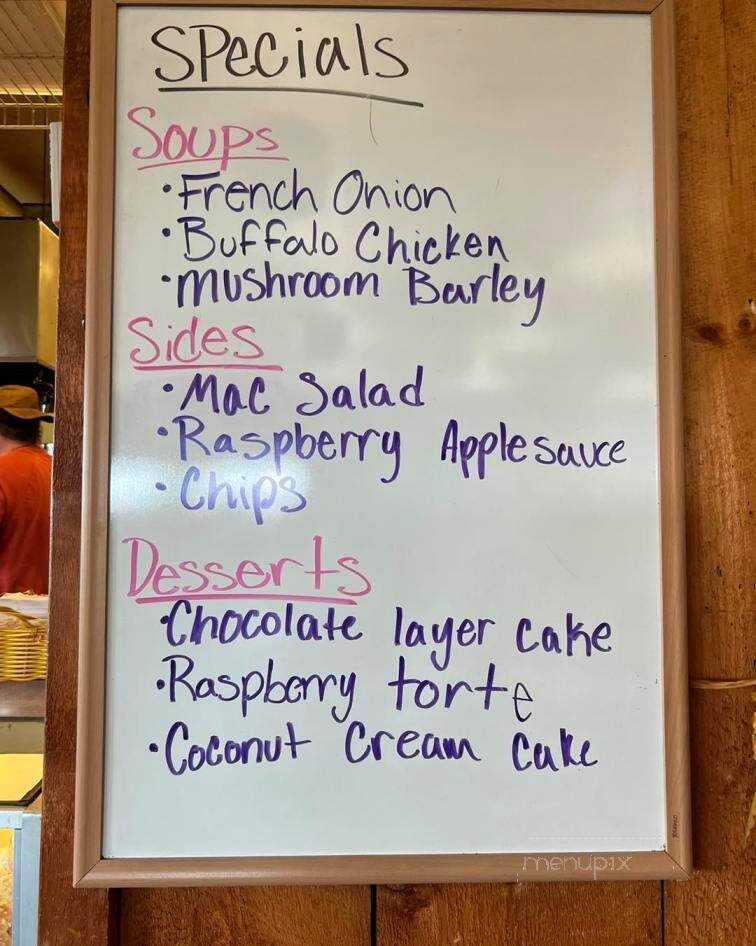 Specials
Soups
• French Onion
• Buffalo Chicken
• Mushroom Barley
Sides
• Mac Salad
• Raspberry Applesauce
• Chips
Desserts
• Chocolate layer cake
• Raspberry torte
• Coconut Cream Cake
menupix